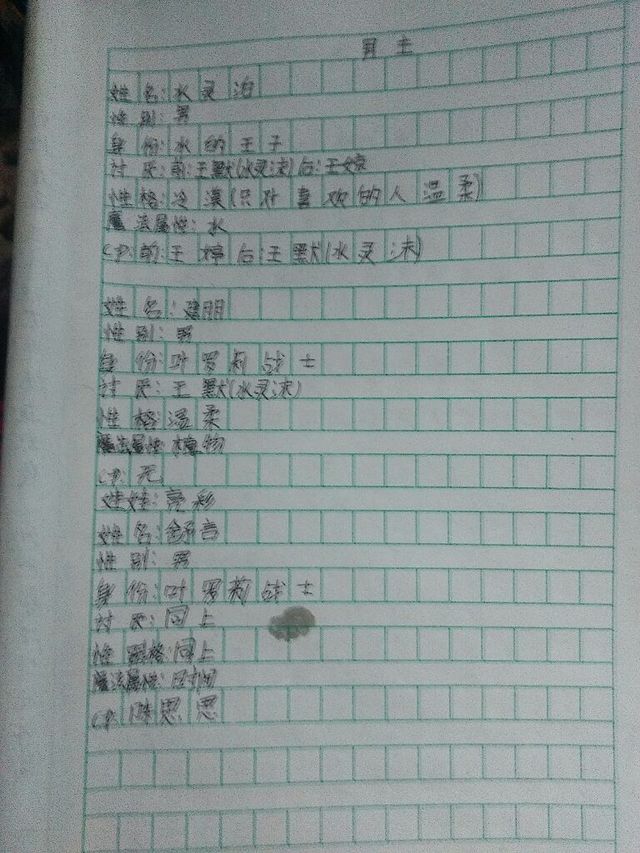 男主
姓名:水灵泊
性别:男
身份:水的王子
讨厌:前:王默(水灵沫)后:王婷
性格:冷漠(只对喜欢的人温柔)
魔法属性:水
CP:前:王婷后:王默(水灵沫)
姓名:建朋
性别:男
身份:叶罗莉战士
讨厌:王默(水灵沫)
性格:温柔
魔法属性:植物
CP:无
娃娃:亮彩
姓名:舒言
性别:男
身份:叶罗莉战士
讨厌:同上
性格:同上
魔法属性:时间
CP:陈思思